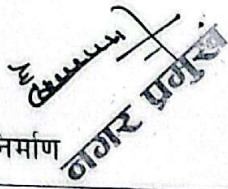 नगर प्रमुख
निर्माण